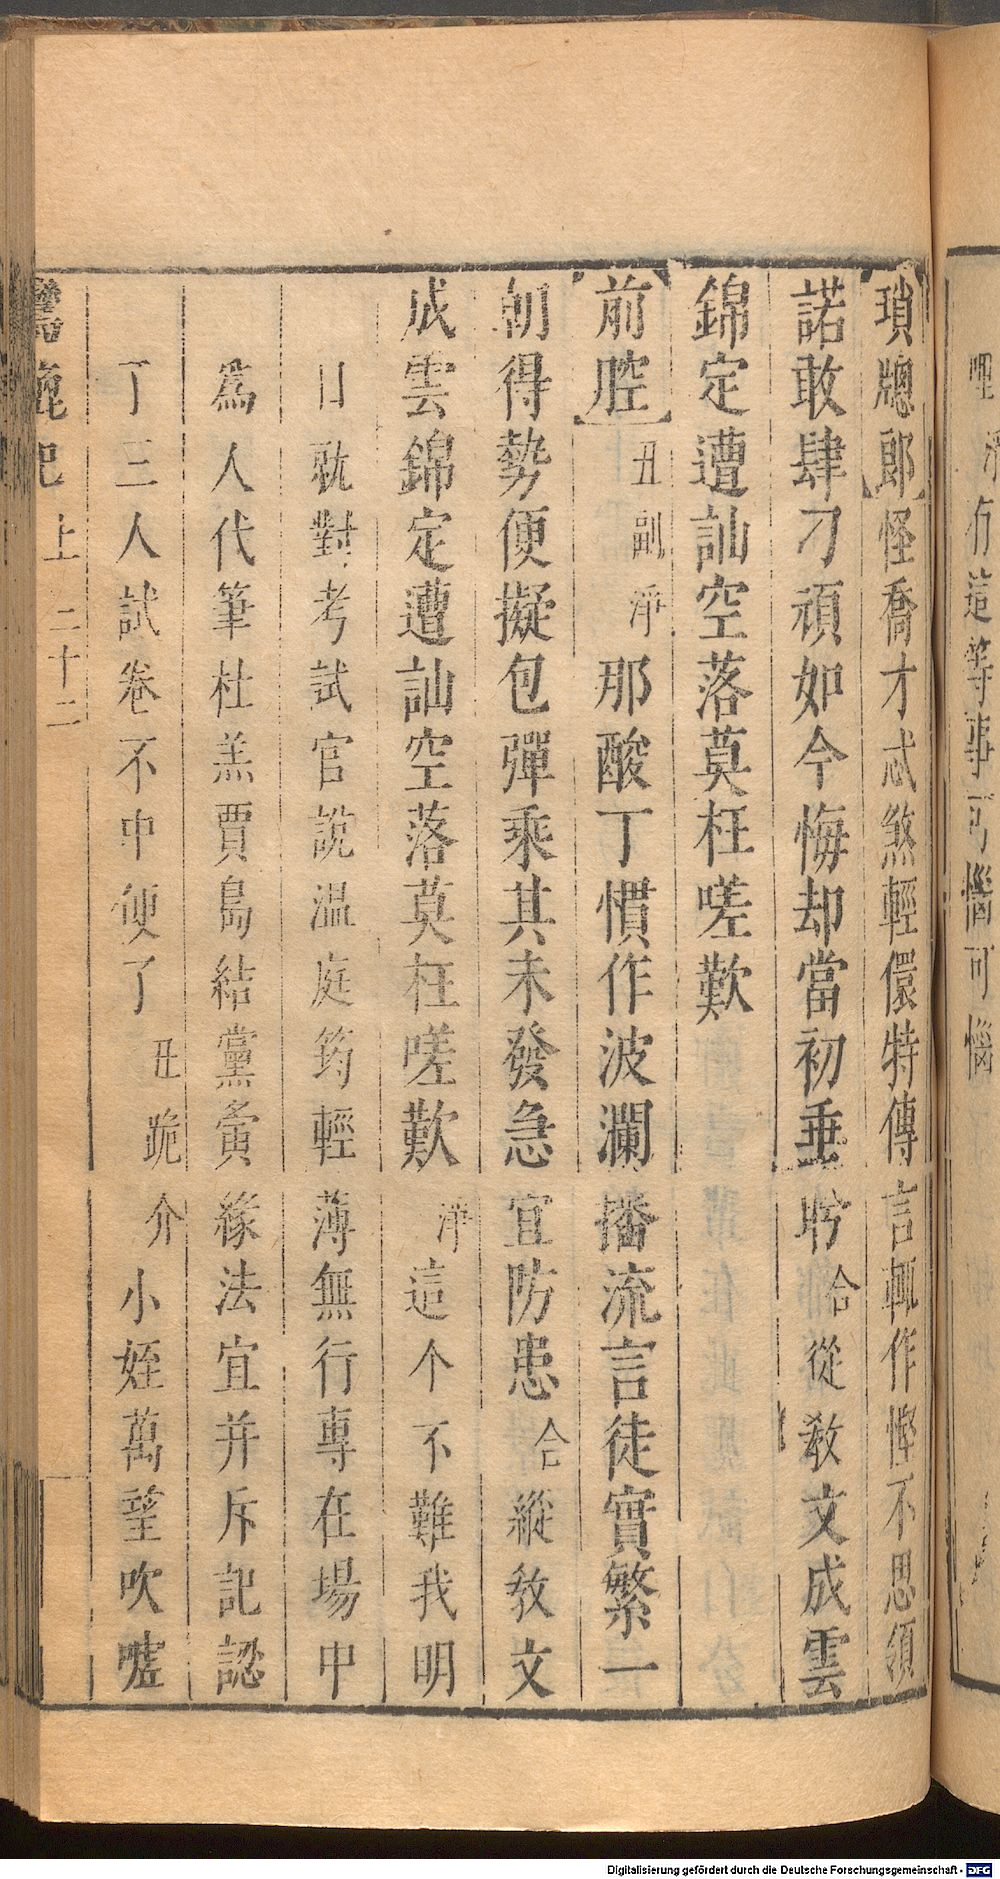 哩 有這等事可惱可惱
瑣牕郎怪喬才忒煞輕儇特傳言輒作慳不思頒
諾敢肆刁頑如今悔却當初垂盻合從教文成雲
錦定遭訕空落莫枉嗟歎
前腔丑副淨那酸丁慣作波瀾播流言徒實繁一
朝得勢便擬包彈乘其未發急宜防患合縱教文
成雲錦定遭訕空落莫枉嗟歎淨這个不難我明
日就對考試官說温庭筠輕薄無行專在場中
為人代筆杜羔賈島結黨夤緣法宜并斥記認
了三人試卷不中便了丑跪介小姪萬望吹噓
鸞鎞記 上 二十二
Digitalisierung gefördert durch die Deutsche Forschungsgemeinschaft - DFG